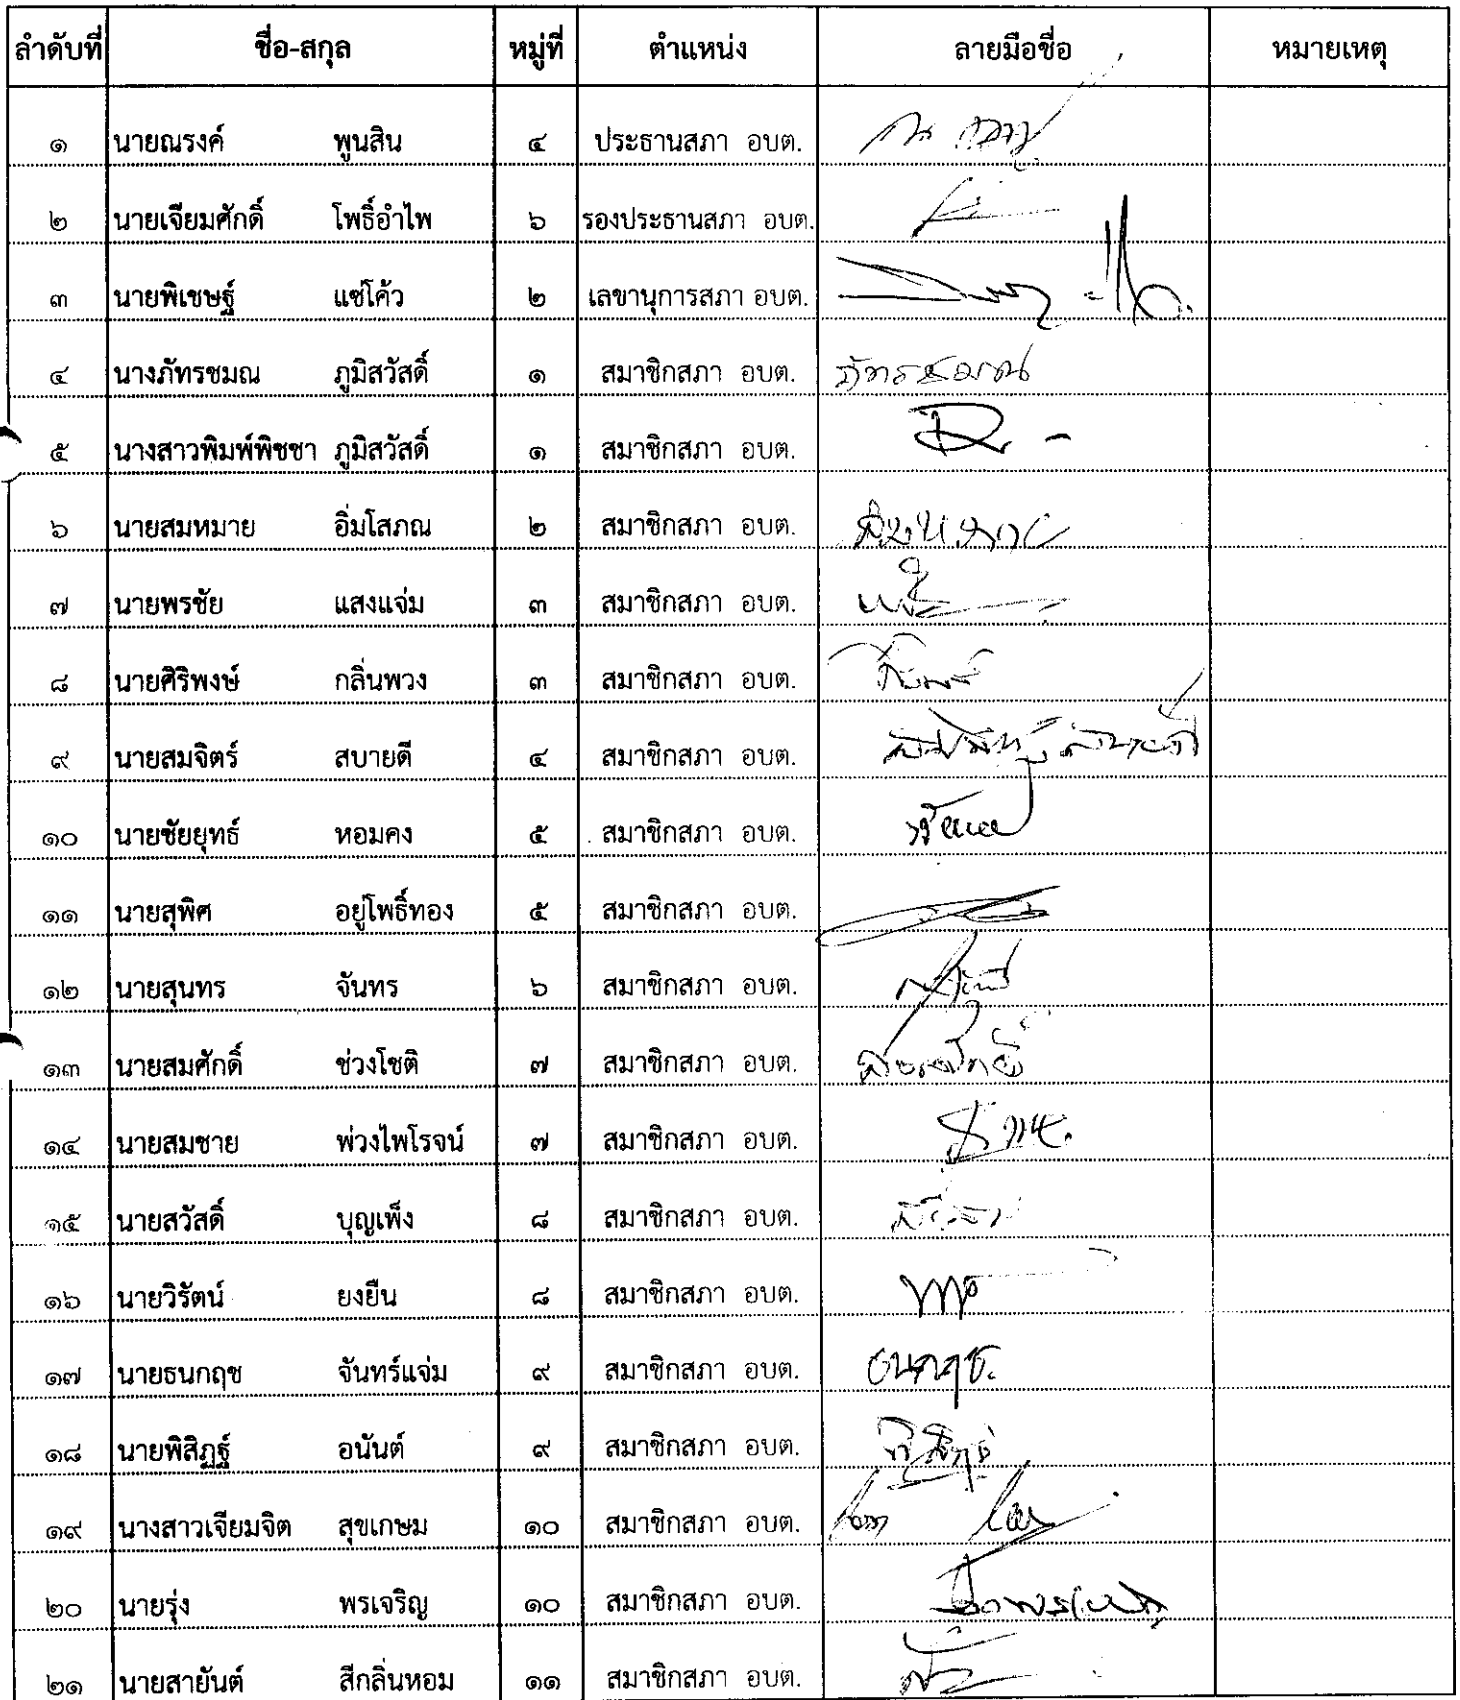 ลำดับที่ ชื่อ-สกุล หมู่ที่ ตำแหน่ง ลายมือชื่อ หมายเหตุ
๑ นายณรงค์ พูนสิน ๔ ประธานสภา อบต.
๒ นายเจียมศักดิ์ โพธิ์อำไพ ๖ รองประธานสภา อบต.
๓ นายพิเชษฐ์ แซ่โค้ว ๒ เลขานุการสภา อบต.
๔ นางภัทรชมณ ภูมิสวัสดิ์ ๑ สมาชิกสภา อบต. ภัทรชมณ
๕ นางสาวพิมพ์พิชชา ภูมิสวัสดิ์ ๑ สมาชิกสภา อบต.
๖ นายสมหมาย อิ่มโสภณ ๒ สมาชิกสภา อบต. สมหมาย
๗ นายพรชัย แสงแจ่ม ๓ สมาชิกสภา อบต.
๘ นายศิริพงษ์ กลิ่นพวง ๓ สมาชิกสภา อบต.
๙ นายสมจิตร์ สบายดี ๔ สมาชิกสภา อบต. สมจิตร์ สบายดี
๑๐ นายชัยยุทธ์ หอมคง ๕ สมาชิกสภา อบต.
๑๑ นายสุพิศ อยู่โพธิ์ทอง ๕ สมาชิกสภา อบต.
๑๒ นายสุนทร จันทร ๖ สมาชิกสภา อบต.
๑๓ นายสมศักดิ์ ช่วงโชติ ๗ สมาชิกสภา อบต. สมศักดิ์
๑๔ นายสมชาย พ่วงไพโรจน์ ๗ สมาชิกสภา อบต.
๑๕ นายสวัสดิ์ บุญเพ็ง ๘ สมาชิกสภา อบต.
๑๖ นายวิรัตน์ ยงยืน ๘ สมาชิกสภา อบต.
๑๗ นายธนกฤช จันทร์แจ่ม ๙ สมาชิกสภา อบต. ธนกฤช.
๑๘ นายพิสิฏฐ์ อนันต์ ๙ สมาชิกสภา อบต.
๑๙ นางสาวเจียมจิต สุขเกษม ๑๐ สมาชิกสภา อบต.
๒๐ นายรุ่ง พรเจริญ ๑๐ สมาชิกสภา อบต.
๒๑ นายสายันต์ สีกลิ่นหอม ๑๑ สมาชิกสภา อบต.